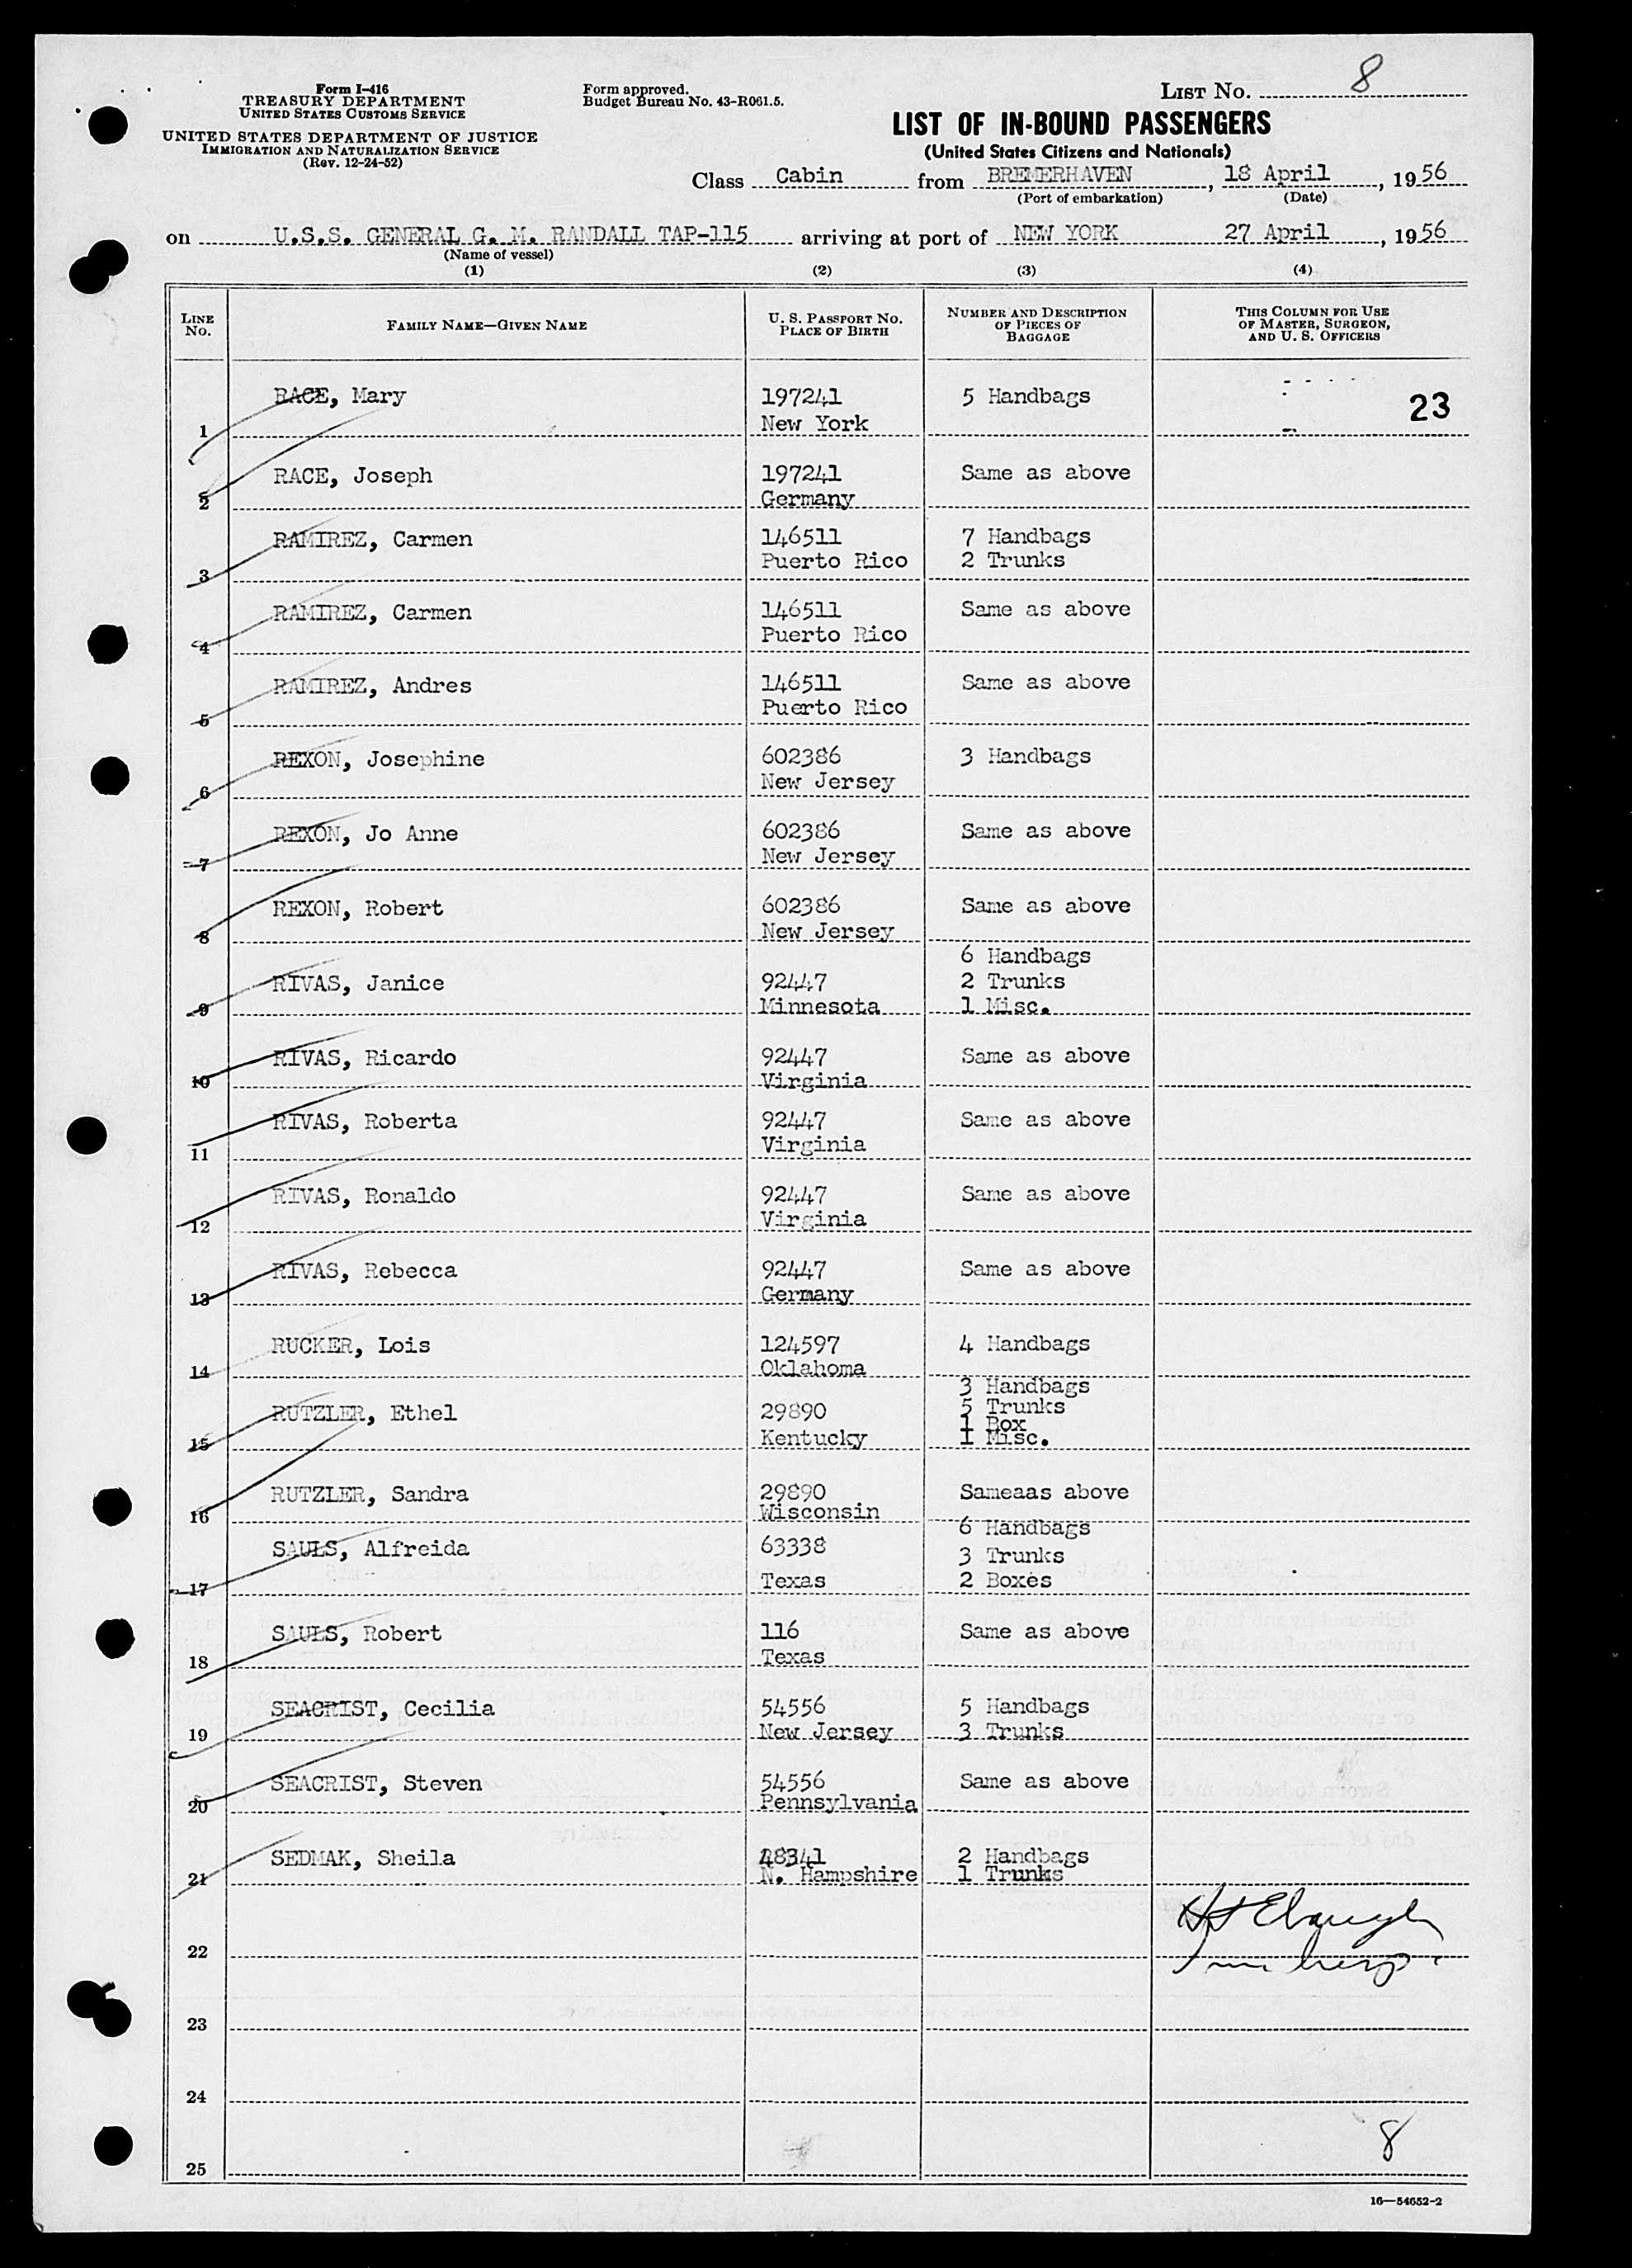 Form I-416
TREASURY DEPARTMENT
UNITED STATES CUSTOMS SERVICE
UNITED STATES DEPARTMENT OF JUSTICE
IMMIGRATION AND NATURALIZATION SERVICE
(Rev. 12-24-52)
Form approved.
Budget Bureau No. 43-R061.5.
LIST No. 8
LIST OF IN-BOUND PASSENGERS
(United States Citizens and Nationals)
Class Cabin from BREMERHAVEN, 18 April, 1956
(Port of embarkation) (Date)
on U.S.S. GENERAL G. M. RANDALL TAP-115 arriving at port of NEW YORK 27 April, 1956
(Name of vessel)
(1) (2) (3) (4)
LINE No. FAMILY NAME—GIVEN NAME U. S. PASSPORT NO. PLACE OF BIRTH NUMBER AND DESCRIPTION OF PIECES OF BAGGAGE THIS COLUMN FOR USE OF MASTER, SURGEON, AND U. S. OFFICERS
1 RACE, Mary 197241 5 Handbags 23
New York
2 RACE, Joseph 197241 Same as above
Germany
3 RAMIREZ, Carmen 146511 7 Handbags
Puerto Rico 2 Trunks
4 RAMIREZ, Carmen 146511 Same as above
Puerto Rico
5 RAMIREZ, Andres 146511 Same as above
Puerto Rico
6 REXON, Josephine 602386 3 Handbags
New Jersey
7 REXON, Jo Anne 602386 Same as above
New Jersey
8 REXON, Robert 602386 Same as above
New Jersey
6 Handbags
9 RIVAS, Janice 92447 2 Trunks
Minnesota 1 Misc.
10 RIVAS, Ricardo 92447 Same as above
Virginia
11 RIVAS, Roberta 92447 Same as above
Virginia
12 RIVAS, Ronaldo 92447 Same as above
Virginia
13 RIVAS, Rebecca 92447 Same as above
Germany
14 RUCKER, Lois 124597 4 Handbags
Oklahoma
3 Handbags
15 RUTZLER, Ethel 29890 5 Trunks
1 Box
Kentucky 1 Misc.
16 RUTZLER, Sandra 29890 Sameaas above
Wisconsin
6 Handbags
17 SAULS, Alfreida 63338 3 Trunks
Texas 2 Boxes
18 SAULS, Robert 116 Same as above
Texas
19 SEACRIST, Cecilia 54556 5 Handbags
New Jersey 3 Trunks
20 SEACRIST, Steven 54556 Same as above
Pennsylvania
21 SEDMAK, Sheila 48341 2 Handbags
N. Hampshire 1 Trunks
22
23
24
25 8
16—54652-2